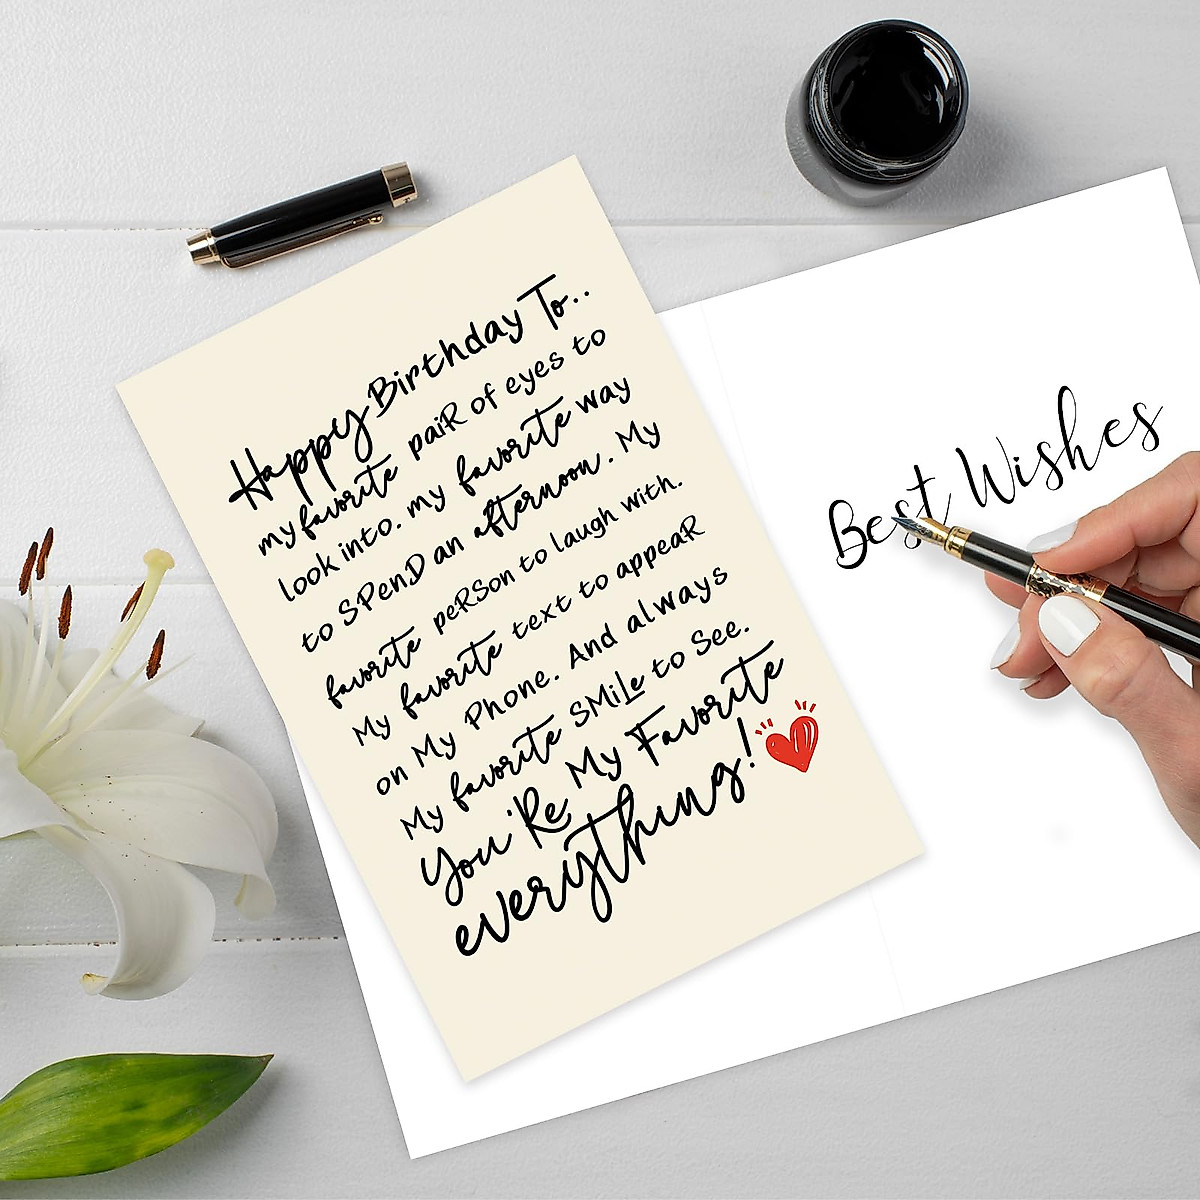 Happy Birthday To..
my favorite paiR of eyes to
look into. my favorite way
to SPenD an afternoon. My
favorite peRSon to laugh with.
My favorite text to appeaR
on My Phone. And always
My favorite SMiLe to See.
You'Re My Favorite
everything!
Best Wishes